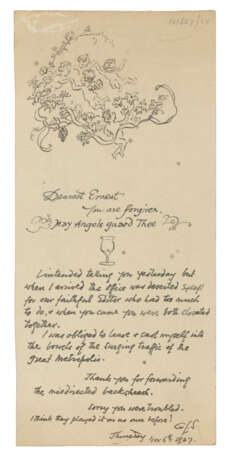 Dearest Ernest
you are forgiven.
May Angels guard Thee
I intended taking you yesterday but
when I arrived the office was deserted except
for our faithful Editor who had too much
to do, & when you came you were both closeted
together.
I was obliged to leave & cast myself into
the bowels of the surging traffic of the
Great Metropolis.
Thank you for forwarding
the misdirected
Sorry you were troubled.
I think they played it on me once before!
Thursday Nov 6th 1907.